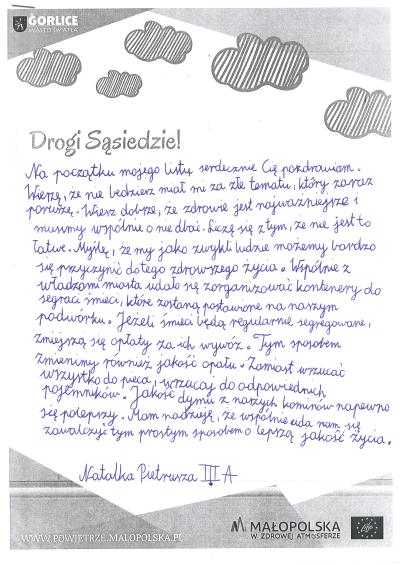 GORLICE
MIASTO ŚWIATŁA
Drogi Sąsiedzie!
Na początku mojego listu serdecznie Cię pozdrawiam.
Wierzę, że nie będziesz miał mi za złe tematu, który zaraz
poruszę. Wiesz dobrze, że zdrowie jest najważniejsze i
musimy wspólnie o nie dbać. Liczę się z tym, że nie jest to
łatwe. Myślę, że my jako zwykli ludzie możemy bardzo
się przyczynić do tego zdrowszego życia. Wspólnie z
władzami miasta udało się zorganizować kontenery do
segracji śmieci, które zostaną postawione na naszym
podwórku. Jeżeli śmieci będą regularnie segregowane,
zmiejszą się opłaty za ich wywóz. Tym sposobem
zmienimy również jakość opału. Zamiast wrzucać
wszystko do pieca, wrzucaj do odpowiednich
pojemników. Jakość dymu z naszych kominów napewno
się polepszy. Mam nadzieję, że wspólnie uda nam się
zawalczyć tym prostym sposobem o lepszą jakość życia.
Natalka Pietrusza III A
WWW.POWIETRZE.MALOPOLSKA.PL
MAŁOPOLSKA
W ZDROWEJ ATMOSFERZE
Life